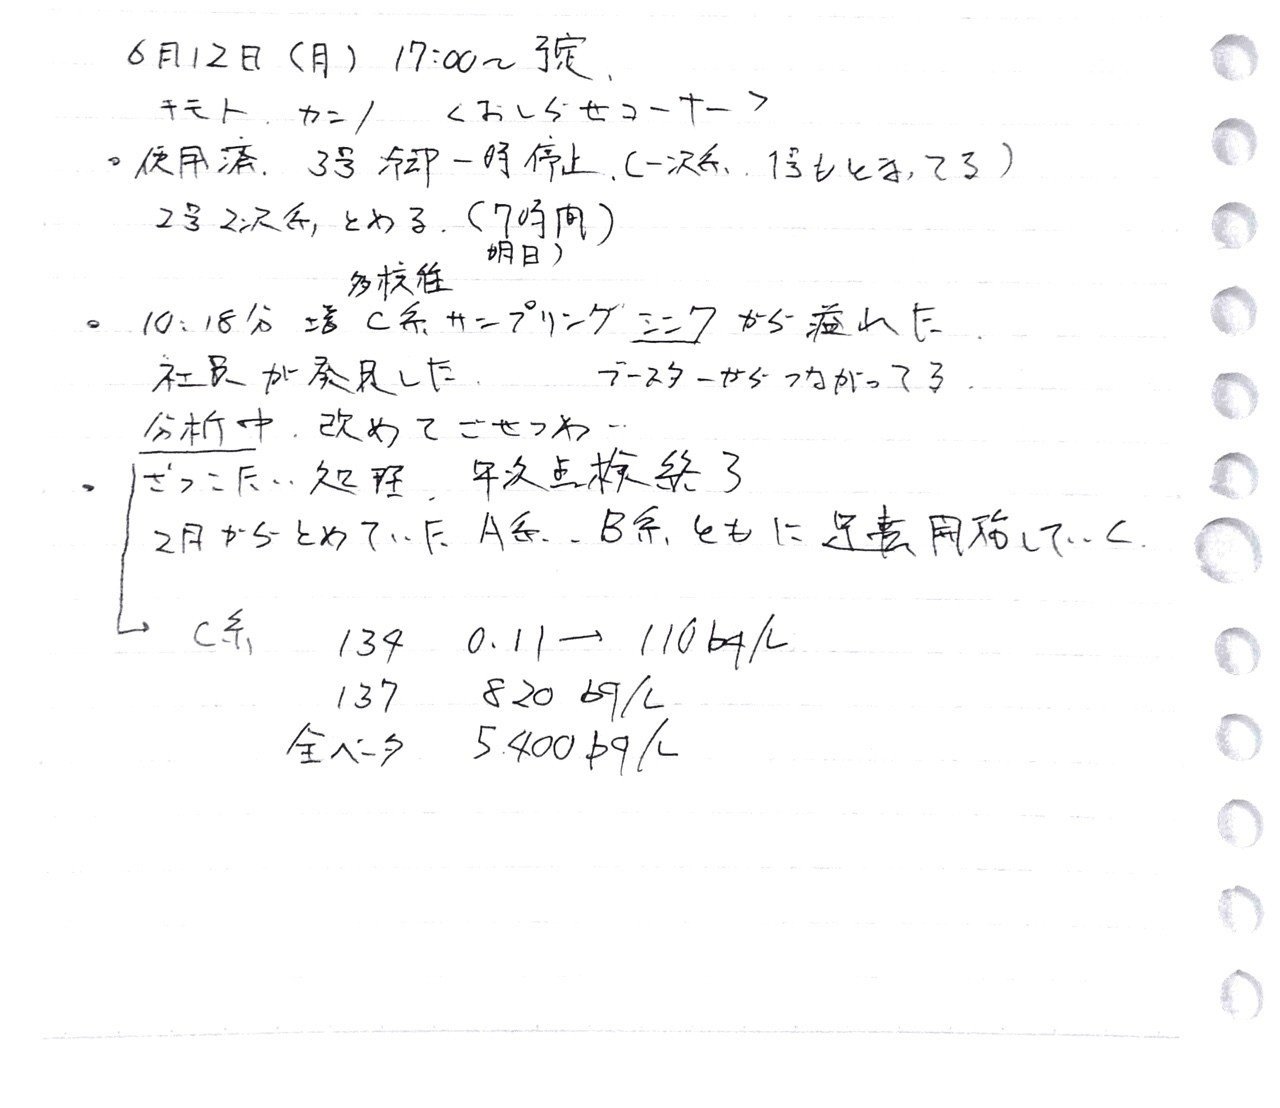 6月12日(月) 17:00〜予定、
キモト、カンノ <おしらせコーナー>
・使用済、3号 冷却一時停止、(一次系、1号もとまってる)
2号2次系、とめる、(7時間)
明日)
多核種
・10:18分 増C系サンプリングシンクから溢れた、
社員が発見した、 ブースターからつながってる、
分析中、改めて
・ざっこたい処理、年次点検終了
2月からとめていた A系、B系、ともに運転開始していく、
C系、 134 0.11→110bq/L
137 820 bq/L
全ベータ 5.400bq/L